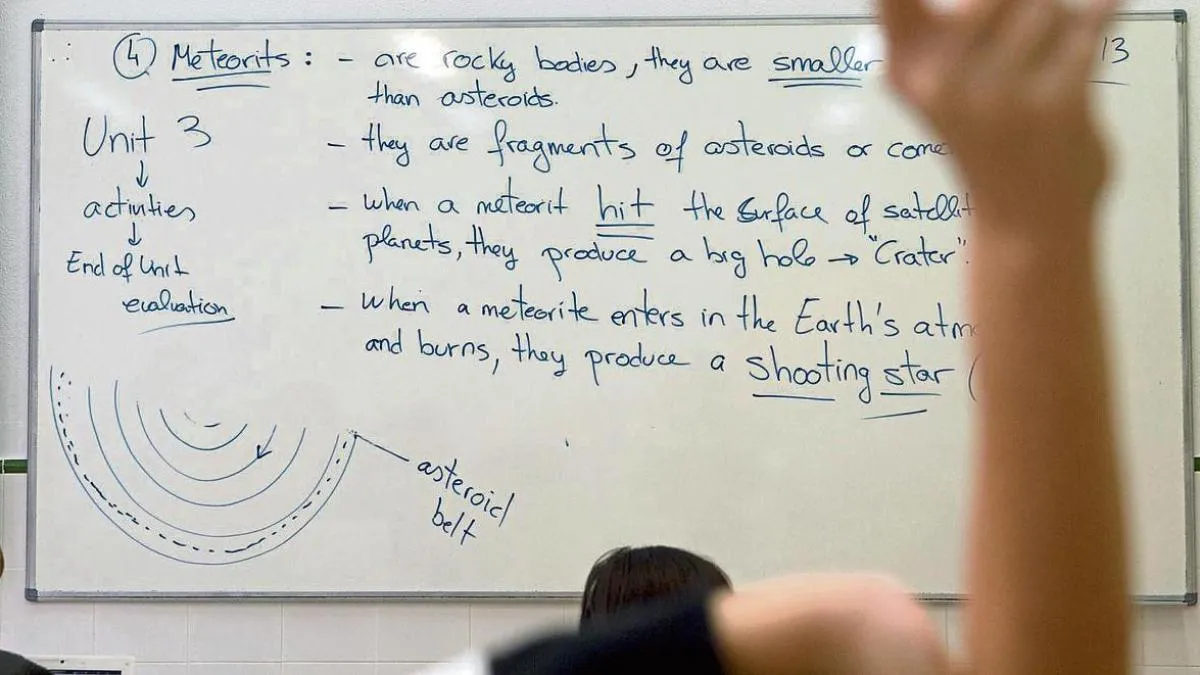 ④ Meteorits : - are rocky bodies, they are smaller
13
than asteroids.
Unit 3
↓
activities
↓
End of Unit
evaluation
- they are fragments of asteroids or come
- when a meteorit hit the surface of satellit
planets, they produce a big hole → "Crater".
- when a meteorite enters in the Earth's atm
and burns, they produce a shooting star (
asteroid
belt